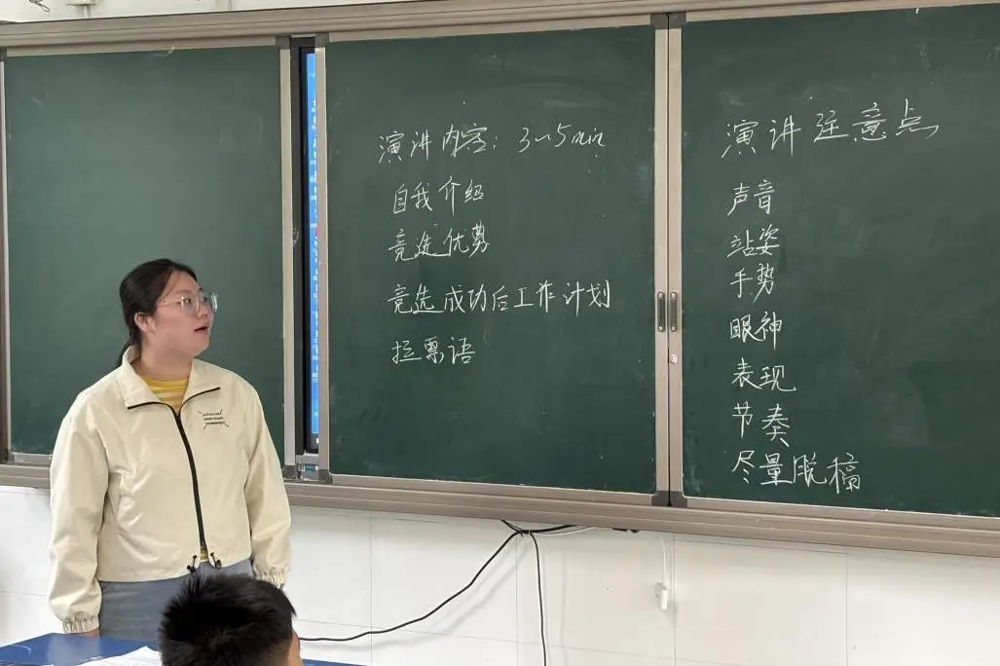 演讲内容：3~5min
自我介绍
竞选优势
竞选成功后工作计划
拉票语
演讲注意点
声音
站姿
手势
眼神
表现
节奏
尽量脱稿